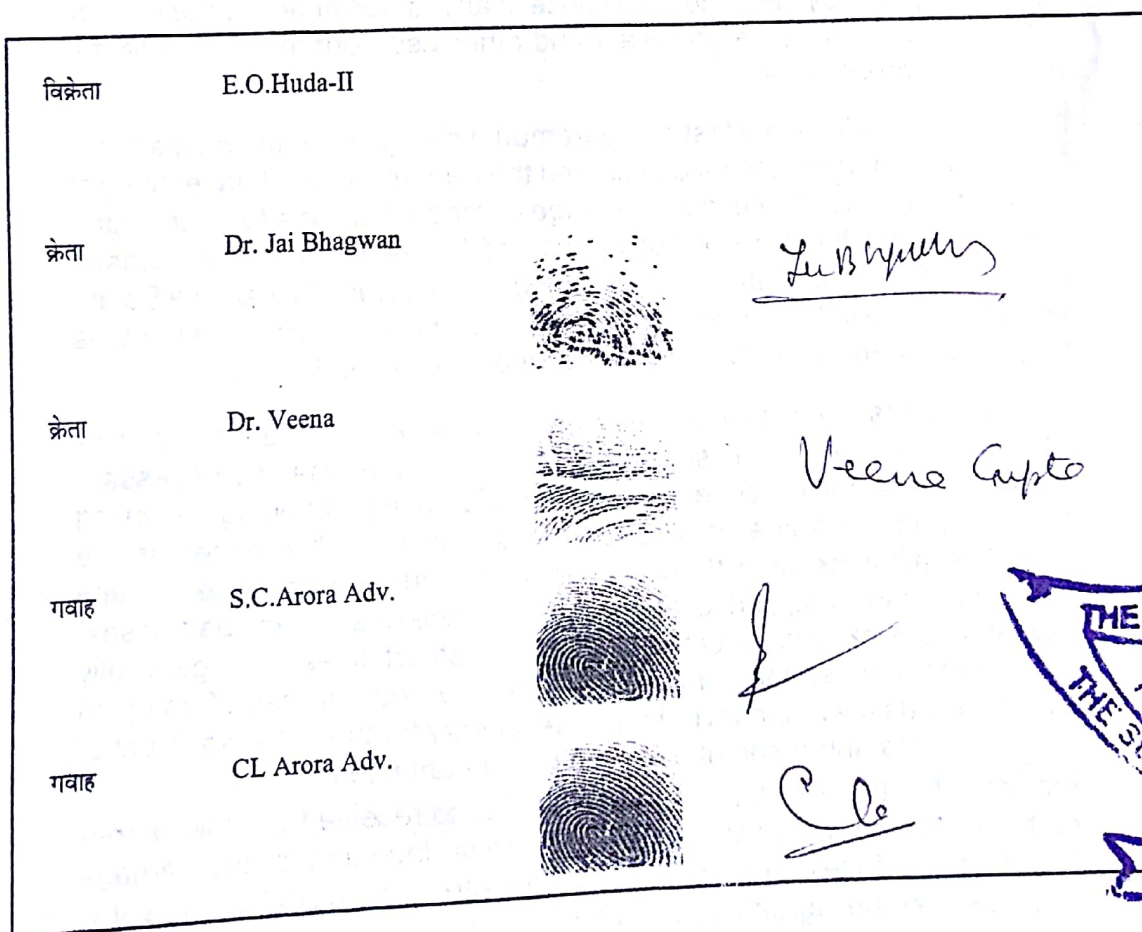 विक्रेता E.O.Huda-II
क्रेता Dr. Jai Bhagwan
क्रेता Dr. Veena Veena Gupta
गवाह S.C.Arora Adv.
गवाह CL Arora Adv.
THE
THE